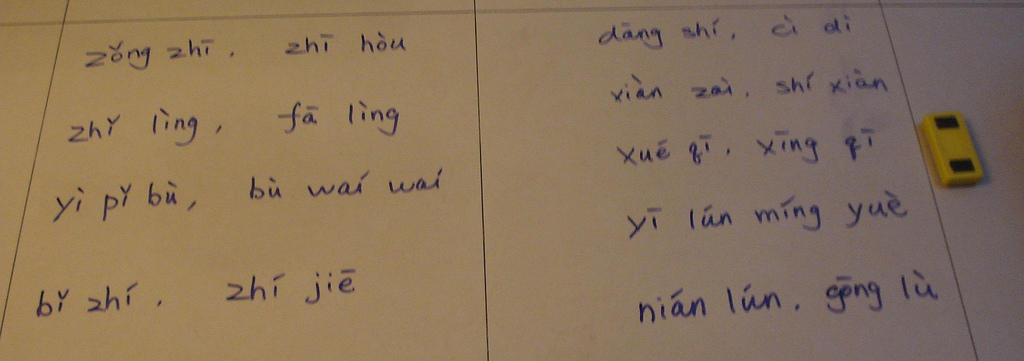 zǒng zhī, zhī hòu
zhǐ lìng, fā lìng
yì pǐ bù, bù waí waí
bǐ zhí, zhí jiē
dāng shí, cì di
xiàn zaì, shí xiàn
xué qī, xīng qī
yī lún míng yuè
nián lún, gōng lù